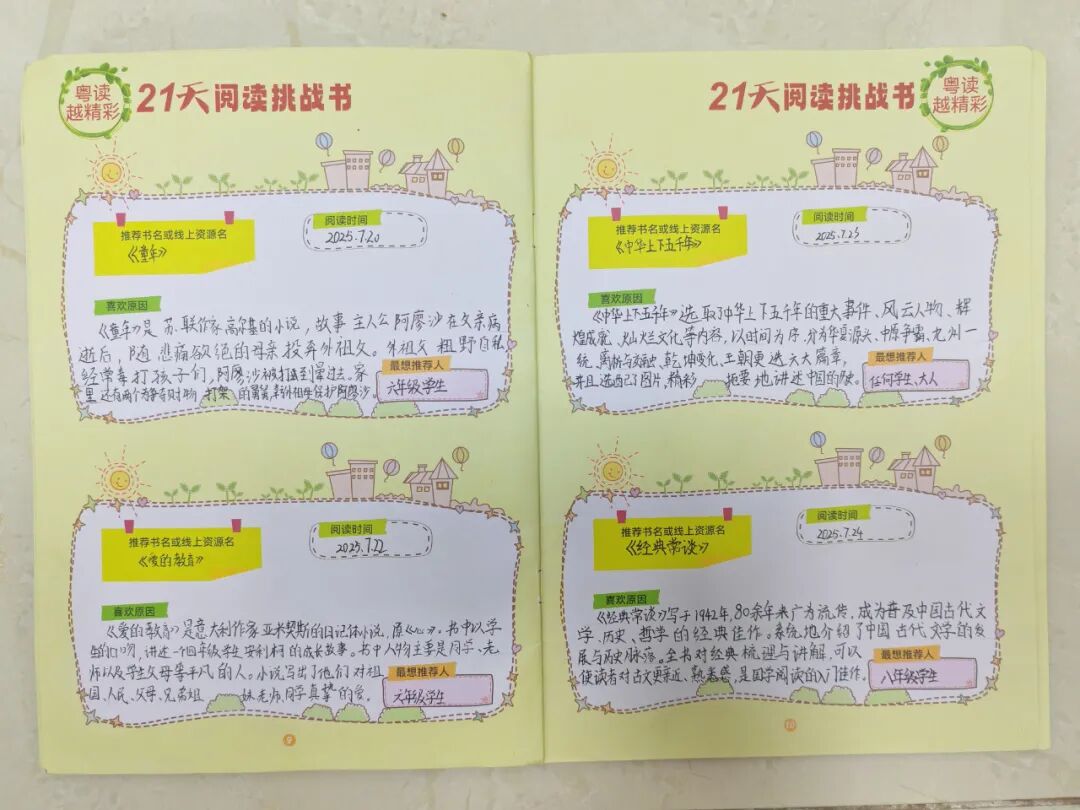 粤读
越精彩
21天阅读挑战书
阅读时间
2025.7.20
推荐书名或线上资源名
《童年》
喜欢原因
《童年》是苏联作家高尔基的小说，故事主人公阿廖沙在父亲病
逝后，随悲痛欲绝的母亲投奔外祖父。外祖父粗野自私
经常毒打孩子们，阿廖沙被打至到晕过去。家
里还有两个为争夺财物打架的舅舅，幸外祖母保护阿廖沙。
最想推荐人
六年级学生
阅读时间
2025.7.22
推荐书名或线上资源名
《爱的教育》
喜欢原因
《爱的教育》是意大利作家亚米契斯的日记体小说，原《心》。书中以学
生的口吻，讲述一个四年级学生安利柯的成长故事。书中人物主要是同学、老
师以及学生父母等平凡的人。小说写出了他们对祖
国、人民、父母、兄弟姐妹、老师、同学真挚的爱。
最想推荐人
六年级学生
9
21天阅读挑战书
粤读
越精彩
阅读时间
2025.7.23
推荐书名或线上资源名
《中华上下五千年》
喜欢原因
《中华上下五千年》选取了中华上下五千年的重大事件、风云人物、辉
煌成就、灿烂文化等内容，以时间为序，分为华夏源头、中原争霸、九州一
统、离析与融、乾坤变化、王朝更迭六大篇章，
并且选配了图片，精彩扼要地讲述中国的历史。
最想推荐人
任何学生、大人
阅读时间
2025.7.24
推荐书名或线上资源名
《经典常谈》
喜欢原因
《经典常谈》写于1942年，80余年来广为流传，成为普及中国古代文
学、历史、哲学的经典佳作。系统地介绍了中国古代文学的发
展与历史脉落。全书对经典梳理与讲解，可以
使读者对古文更亲近、熟悉感，是国学阅读的入门佳作。
最想推荐人
八年级学生
10